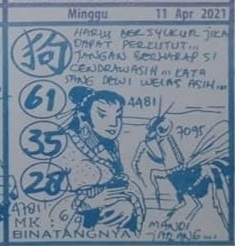 Minggu 11 Apr 2021
狗
HARUS BERSYUKUR JIKA
DAPAT PERKUTUT...
JANGAN BERHARAP SI
CENDRAWASIH... KATA
SANG DEWI WELAS ASIH...
61
4481
35
7095
28
4781
MK: 6/9
BINATANGNYA
MANDI